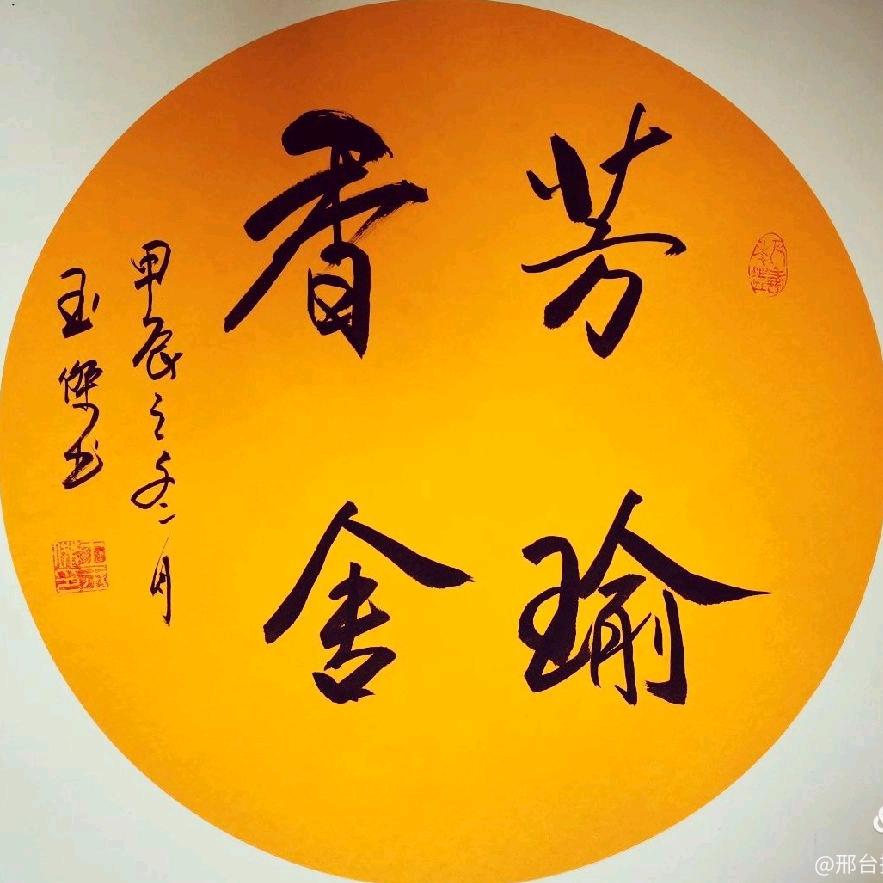 芳瑜
香舍
甲辰之冬二月
玉傑书
@邢台